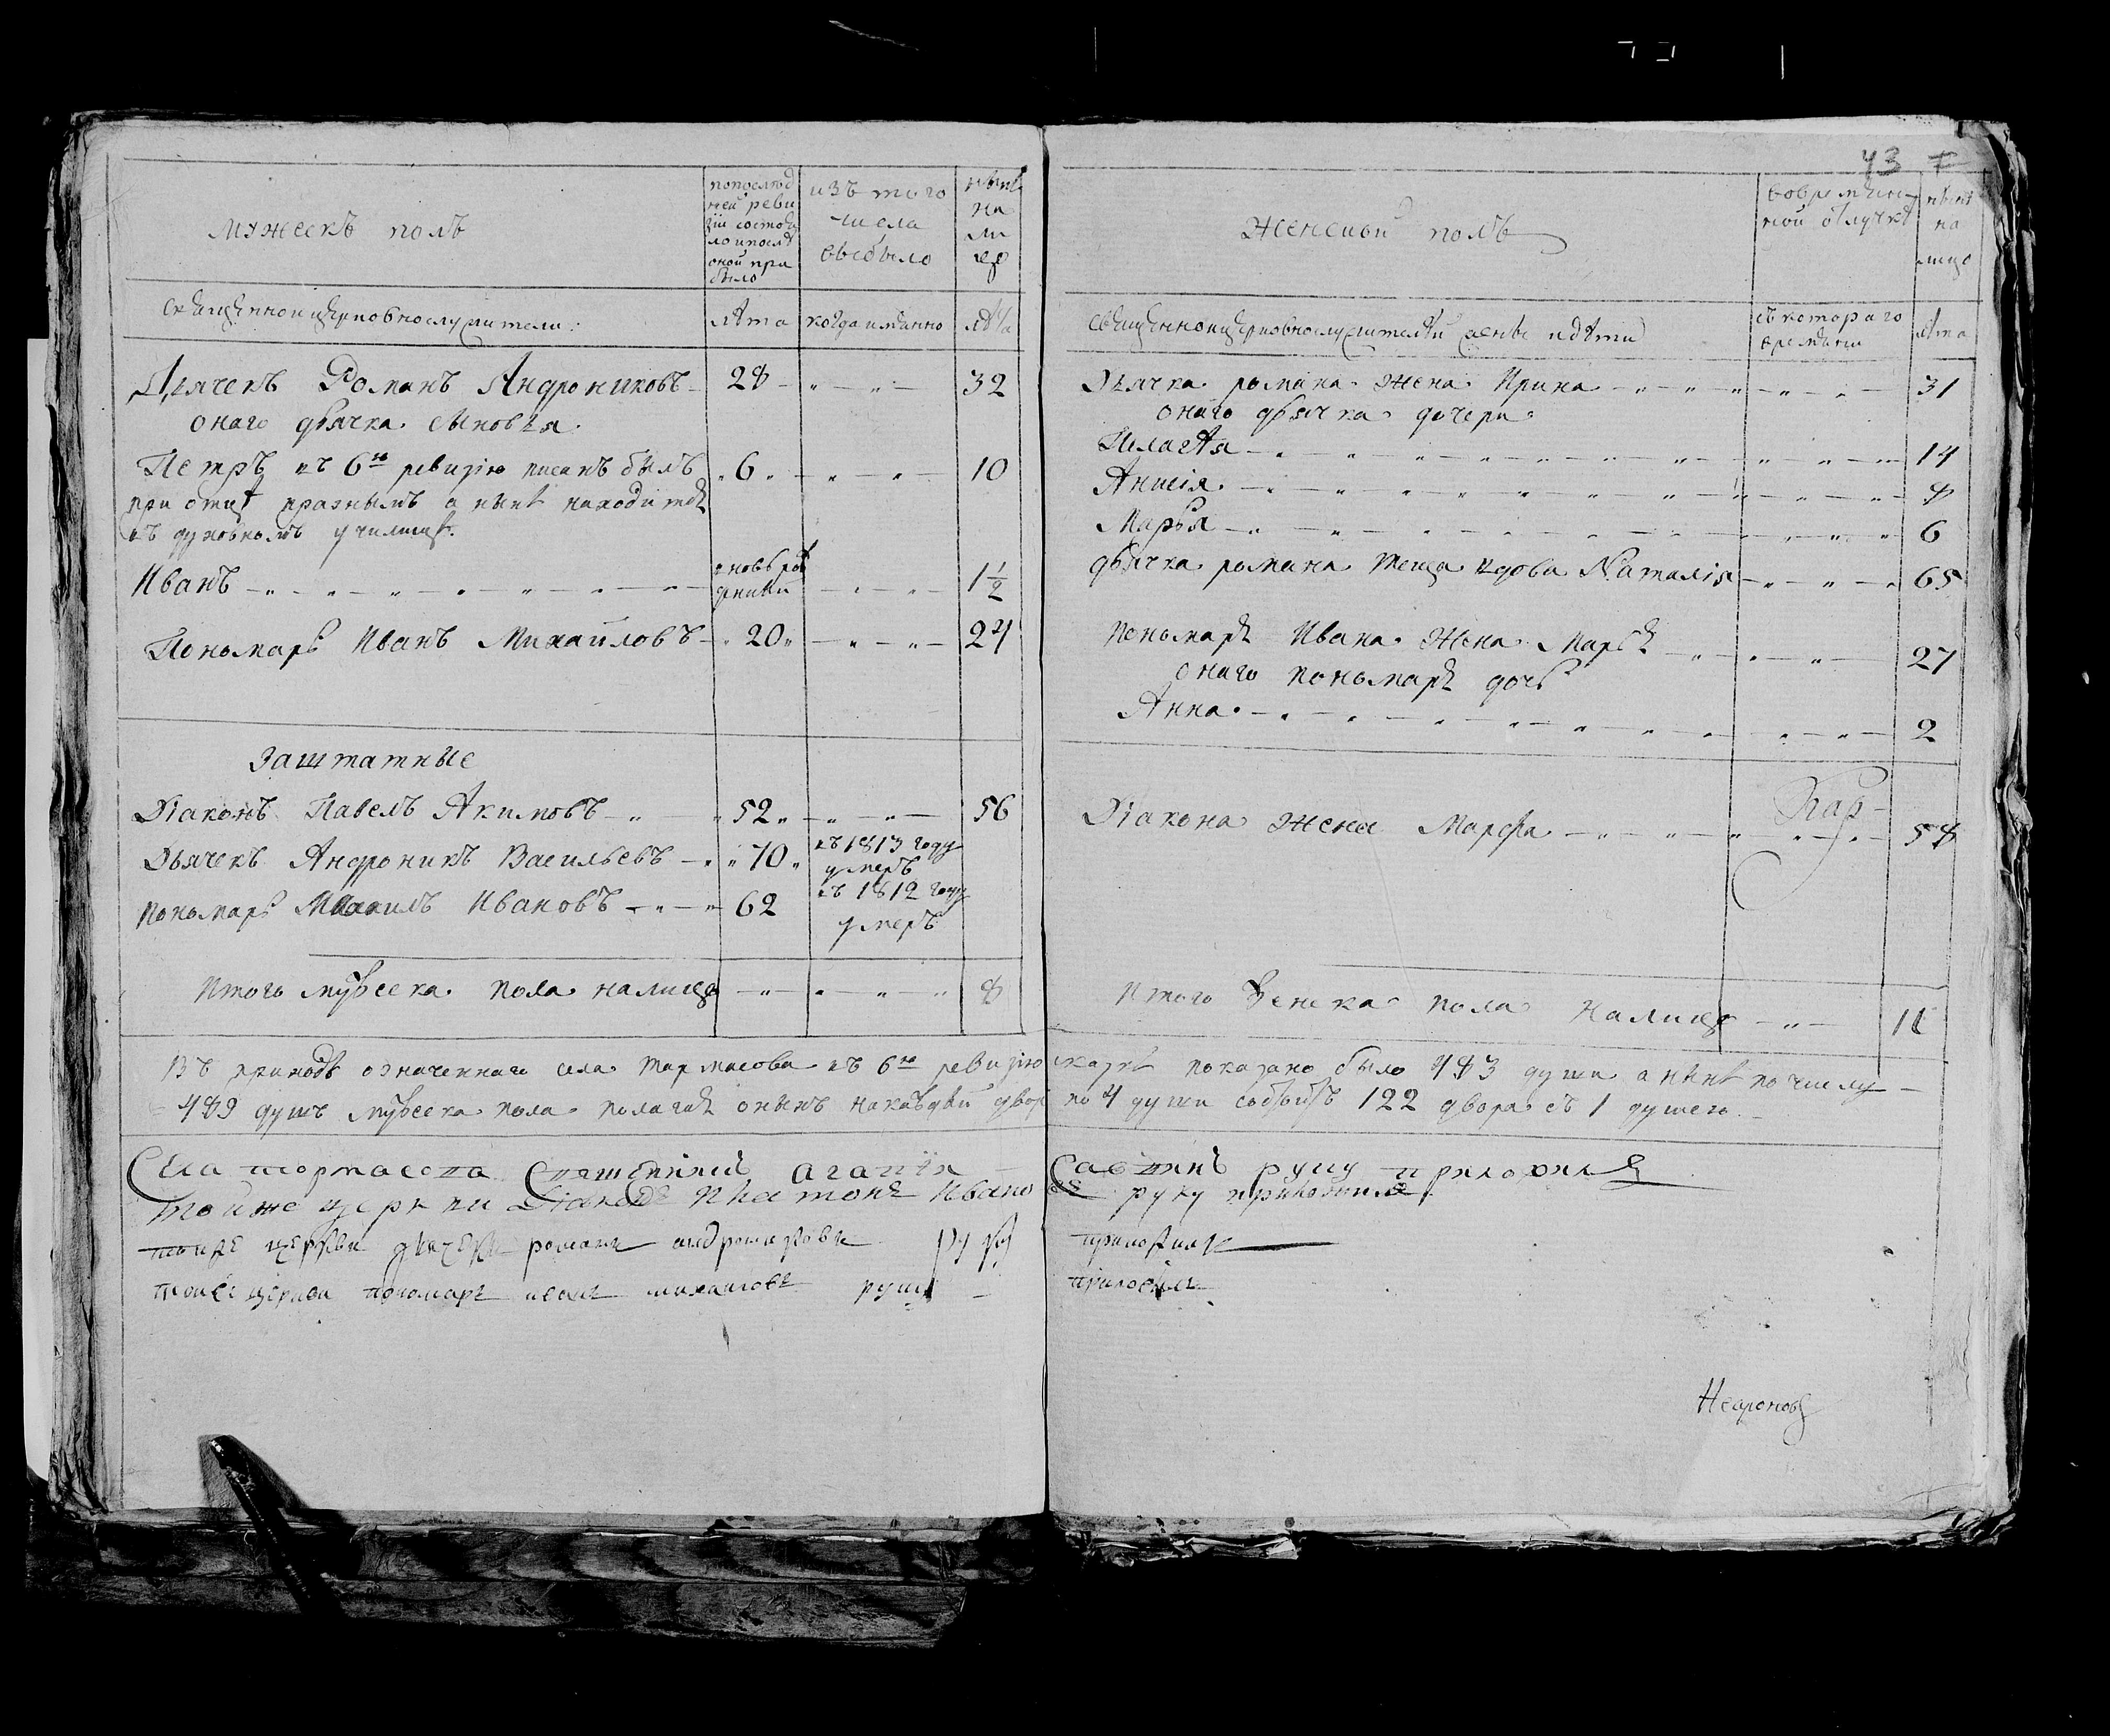 43
мужескъ полъ
по послѣд
ней реви
зіи состоя
ло и послѣ
оной при
было
изъ того
числа
выбыло
нынѣ
на
ли
цо
священноицерковнослужители:
лѣта
когда имянно
лѣта
Дьячекъ Романъ Андрониковъ 28 32
онаго дьячка сыновья
Петръ въ 6ю ревизію писанъ былъ 6 10
при отцѣ празнымъ а нынѣ находится
въ духовномъ училищѣ.
Иванъ вновь рож
денный 1 1/2
Пономарь Иванъ Михайловъ 20 24
Заштатные
Діаконъ Павелъ Акимовъ 52 56
Дьячекъ Андроникъ Васильевъ 70 въ 1813 году
умеръ
Пономарь Михаилъ Ивановъ 62 въ 1812 году
умеръ
Итого мужеска пола налицо 8
женской полъ
вовремян-
ной отлучкѣ
нынѣ
на
лицо
священноицерковнослужителей жены и дѣти
съ котораго
времяни
лѣта
Дьячка романа жена Ирина 31
онаго дьячка дочери
Пелагѣя 14
Анисія 8
Марья 6
дьячка романа теща вдова Наталія 65
пономаря Ивана жена Марья 27
онаго пономаря дочь
Анна 2
Діакона жена Марфа 58
Итого женска пола налицо 11
Въ приходѣ означеннаго села Тармасова въ 6ю ревизію сказкѣ показано было 483 души а нынѣ по числу
489 душъ мужеска пола полагая оныхъ накаждый дворъ по 4 души состоитъ 122 двора съ 1 душею
Села тормасова Священникъ агапiи Савинъ руку приложилъ
тоиже церкви Діаконъ Платонъ Ивановъ руку приложилъ
тоиже церкви дячекъ романъ андрониковъ руку приложилъ
тоиже церкви пономарь иванъ михаиловъ руку приложилъ